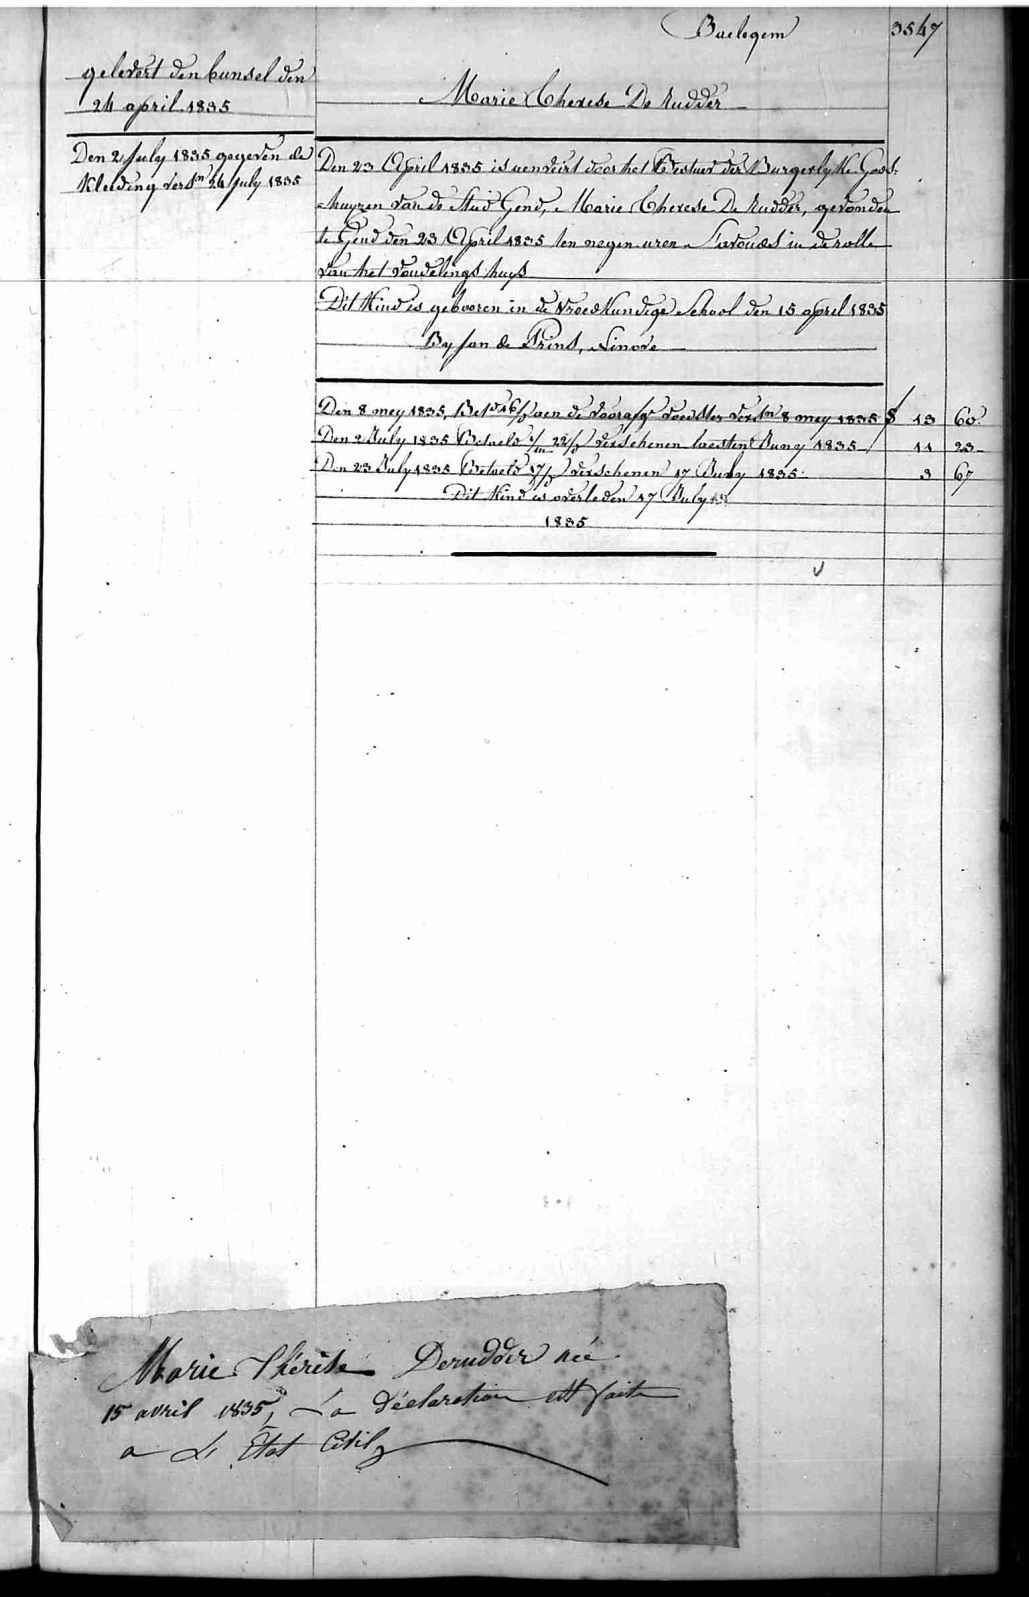 Baelegem
3547
gelevert den bunsel den
24 april 1835
Marie Therese De Rudder
Den 2 July 1835 gegeven de
Kleeding versn 24 July 1835
Den 23 April 1835 is aenveirt door het Bestuer der Burgerlyke Gods-
huyzen van de Stad Gend, Marie Therese De Rudder, gevonden
te Gend den 23 April 1835 ten negen uren s'avonds in de rolle
van het vondelings huys
Dit Kind is gebooren in de vroedkundige School den 15 april 1835
By Jan de Prins, Ninove
Den 8 mey 1835, Betd 16/ aen de voorafge voedster versn 8 mey 1835 $ 13 60
Den 2 July 1835 Betaeld verschenen laesten Juny 1835 11 23
Den 23 July 1835 Betaeld 17/ verschenen 17 July 1835 3 67
Dit Kind is overleden 17 July
1835
Marie Thérèse Derudder née
15 avril 1835, La déclaration est faite
a L'État Civil